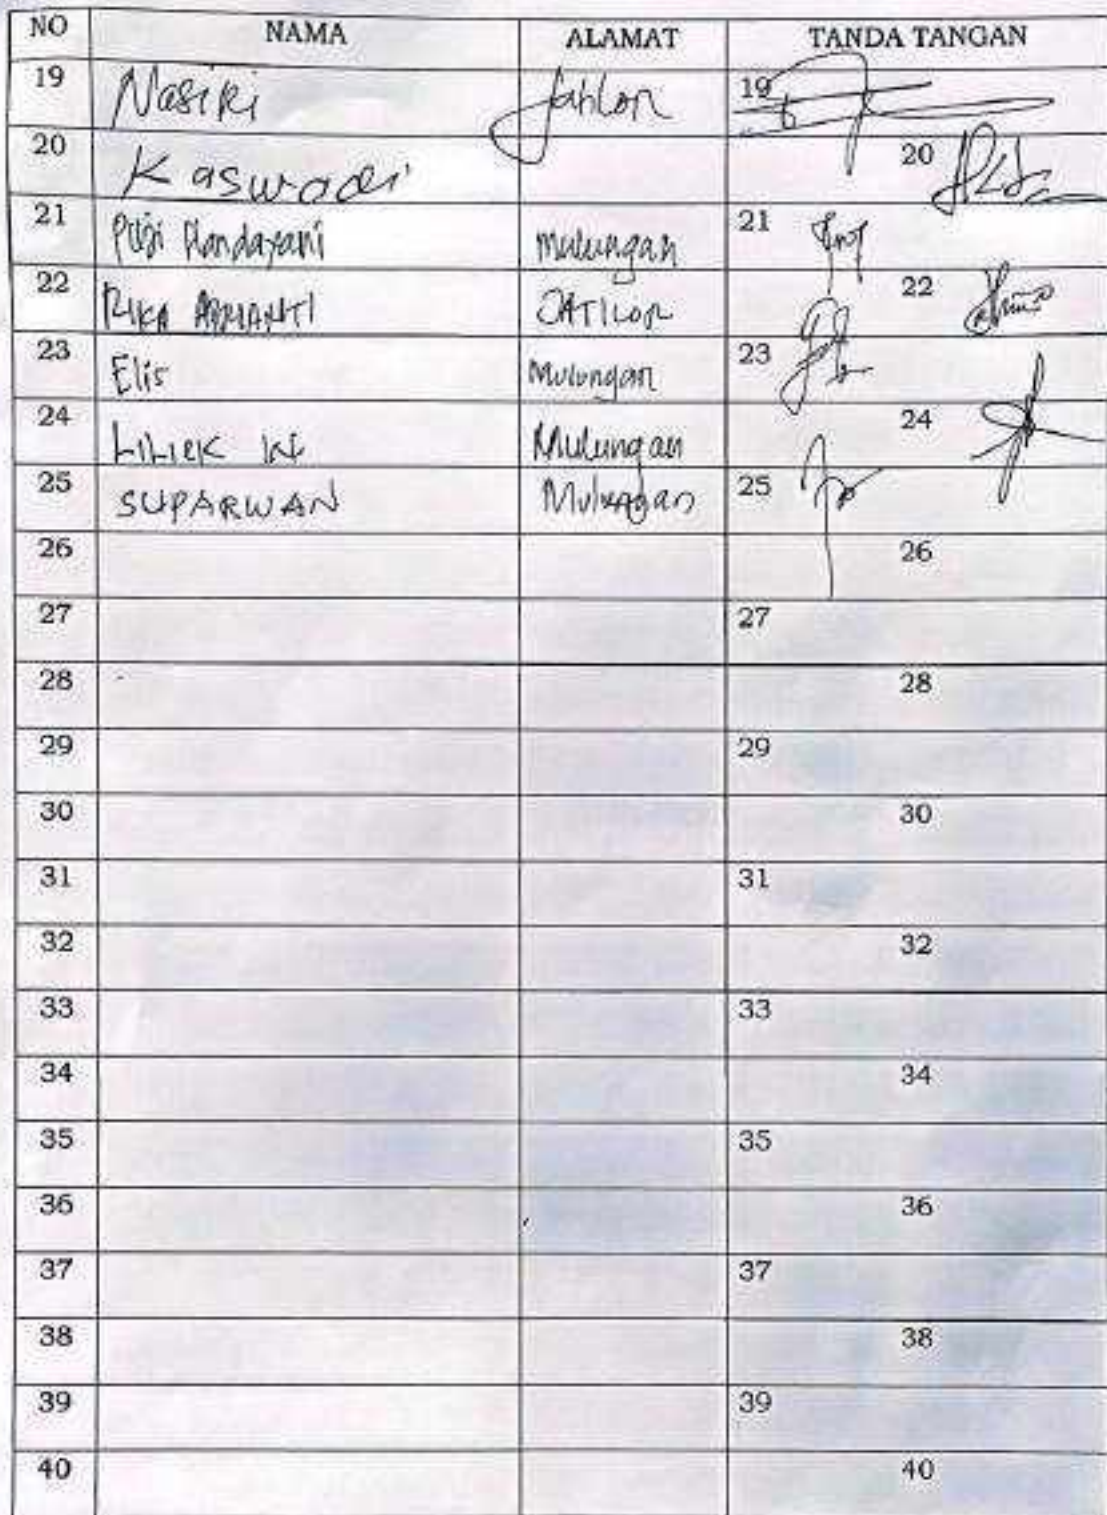 NO NAMA ALAMAT TANDA TANGAN
19 Nasiki Jatilor 19
20 Kaswadi 20
21 Puji Handayani Mulungan 21
22 RIKA JATILOR 22
23 Elis Mulungan 23
24 LILIEK Mulungan 24
25 SUPARWAN Mulungan 25
26 26
27 27
28 28
29 29
30 30
31 31
32 32
33 33
34 34
35 35
36 36
37 37
38 38
39 39
40 40